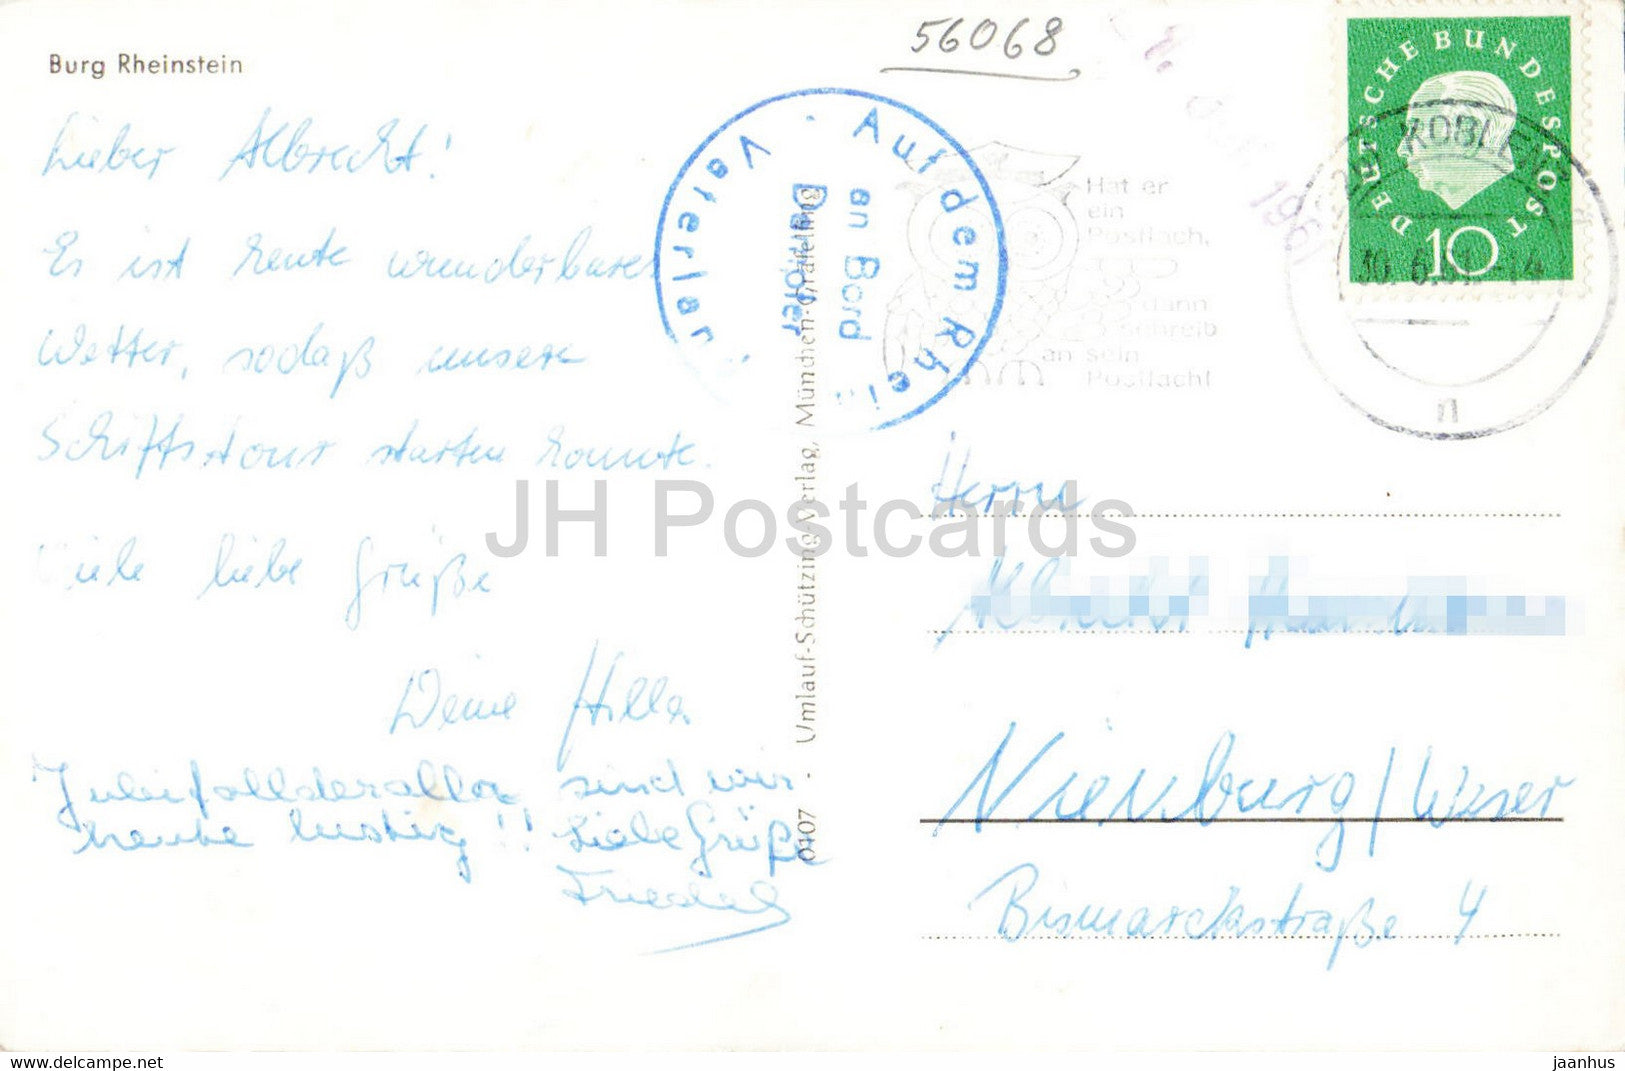 Burg Rheinstein
Lieber Albrecht!
Es ist heute wunderbares
Wetter, sodaß unsere
Schiffstour starten konnte.
Viele liebe Grüße
Deine Hilla
sind wir
heute lustig!! Liebe Grüße
Friedel
0107 - Umlauf-Schützing-Verlag, München-Gräfelfing
56068
Auf dem Rhein · Vaterland
an Bord
Dampfer
Hat er
ein
Postfach,
dann
schreib
an sein
Postfach!
DEUTSCHE BUNDESPOST
10
KOBLENZ
n
Herrn
Albrecht
Nienburg/Weser
Bismarckstraße 4
JH Postcards
www.delcampe.net
jaanhus